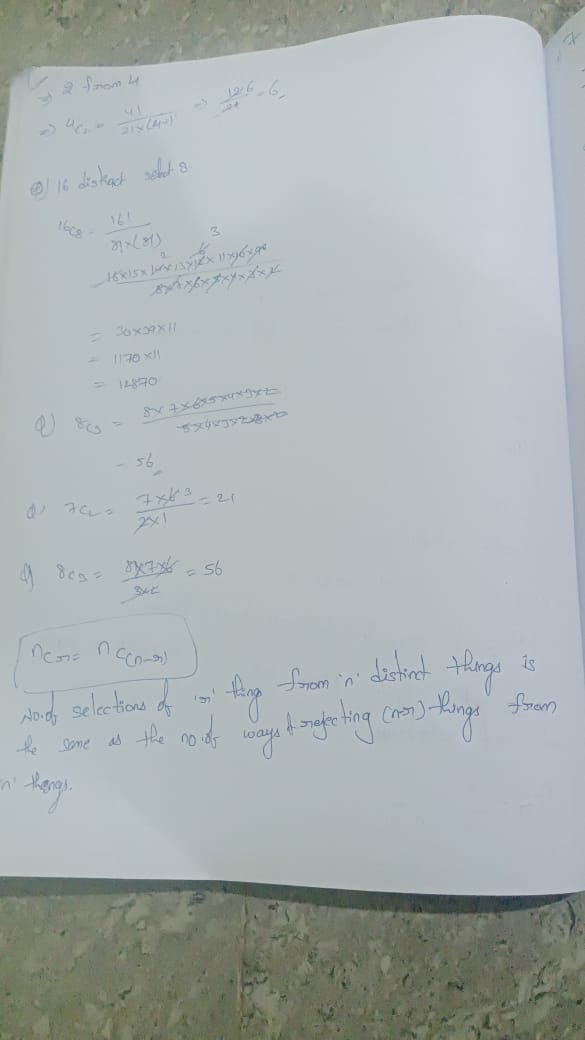 => 2 from 4
=> 4C2 = 4! / 2!x(4-2)! => 12 6 / 2! = 6
Q) 16 distinct select 8
16C8 = 16! / 8!x(8!)
3
2 6
16x15x14x13x12x11x10x9 / 8x7x6x5x4x3x2
= 30x39x11
= 1170x11
= 12870
Q) 8C3 = 8x7x6x5x4x3x2 / 5x4x3x2x3x2
= 56
Q) 7C2 = 7x6 3 / 2x1 = 21
Q) 8C3 = 8x7x6 / 3x2 = 56
nCr = nC(n-r)
No.of selections of 'r' thing from 'n' distinct things is
the same as the no.of ways of rejecting (n-r) things from
n' things.